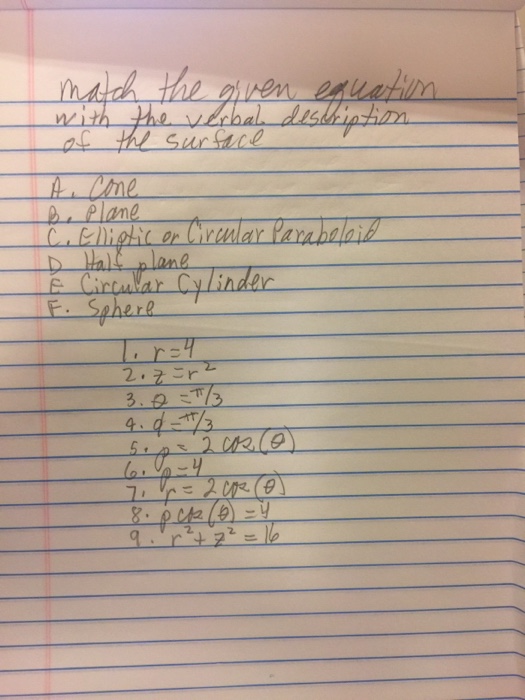 match the given equation
with the verbal description
of the surface
A. Cone
B. Plane
C. Elliptic or Circular Paraboloid
D Half plane
E Circular Cylinder
F. Sphere
1. r=4
2. z=r²
3. θ=π/3
4. φ=π/3
5. ρ=2cos(θ)
6. ρ=4
7. r=2cos(θ)
8. ρcos(θ)=4
9. r²+z²=16